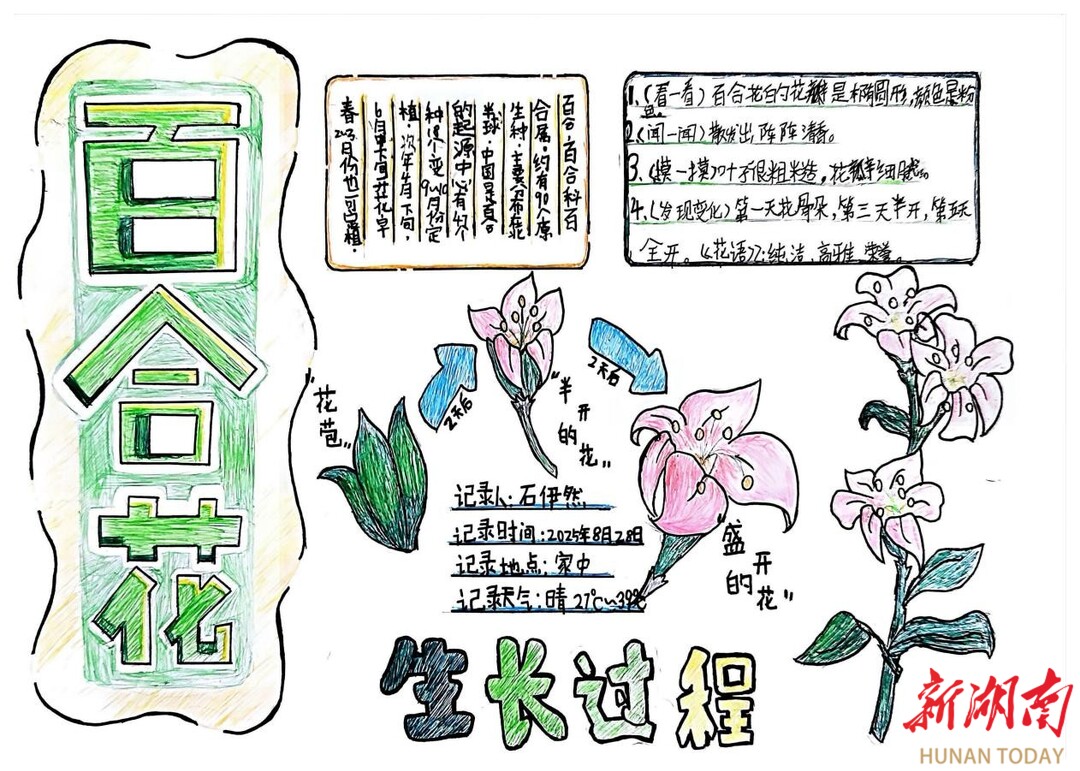 百合花
百合,百合科百
合属,约有90人原
生种,主要分布北
半球,中国是百合
的起源中心有47个
种18个变 9~10月份定
植,次年4月下旬,
6月早下旬花花早
春2~3月份也可定植.
1.(看一看)百合花白的花瓣是椭圆形,颜色是粉
色。
2.(闻一闻)散发出阵阵清香。
3.(摸一摸)叶子很粗糙,花瓣细腻。
4.(发现变化)第一天花骨朵,第三天半开,第五天
全开。《花语》:纯洁、高雅、荣誉。
"花苞"
2天后
"半开的花"
2天后
"盛开的花"
记录人:石伊然
记录时间:2025年8月28日
记录地点:家中
记录天气:晴 27℃~39℃
生长过程
新湖南
HUNAN TODAY